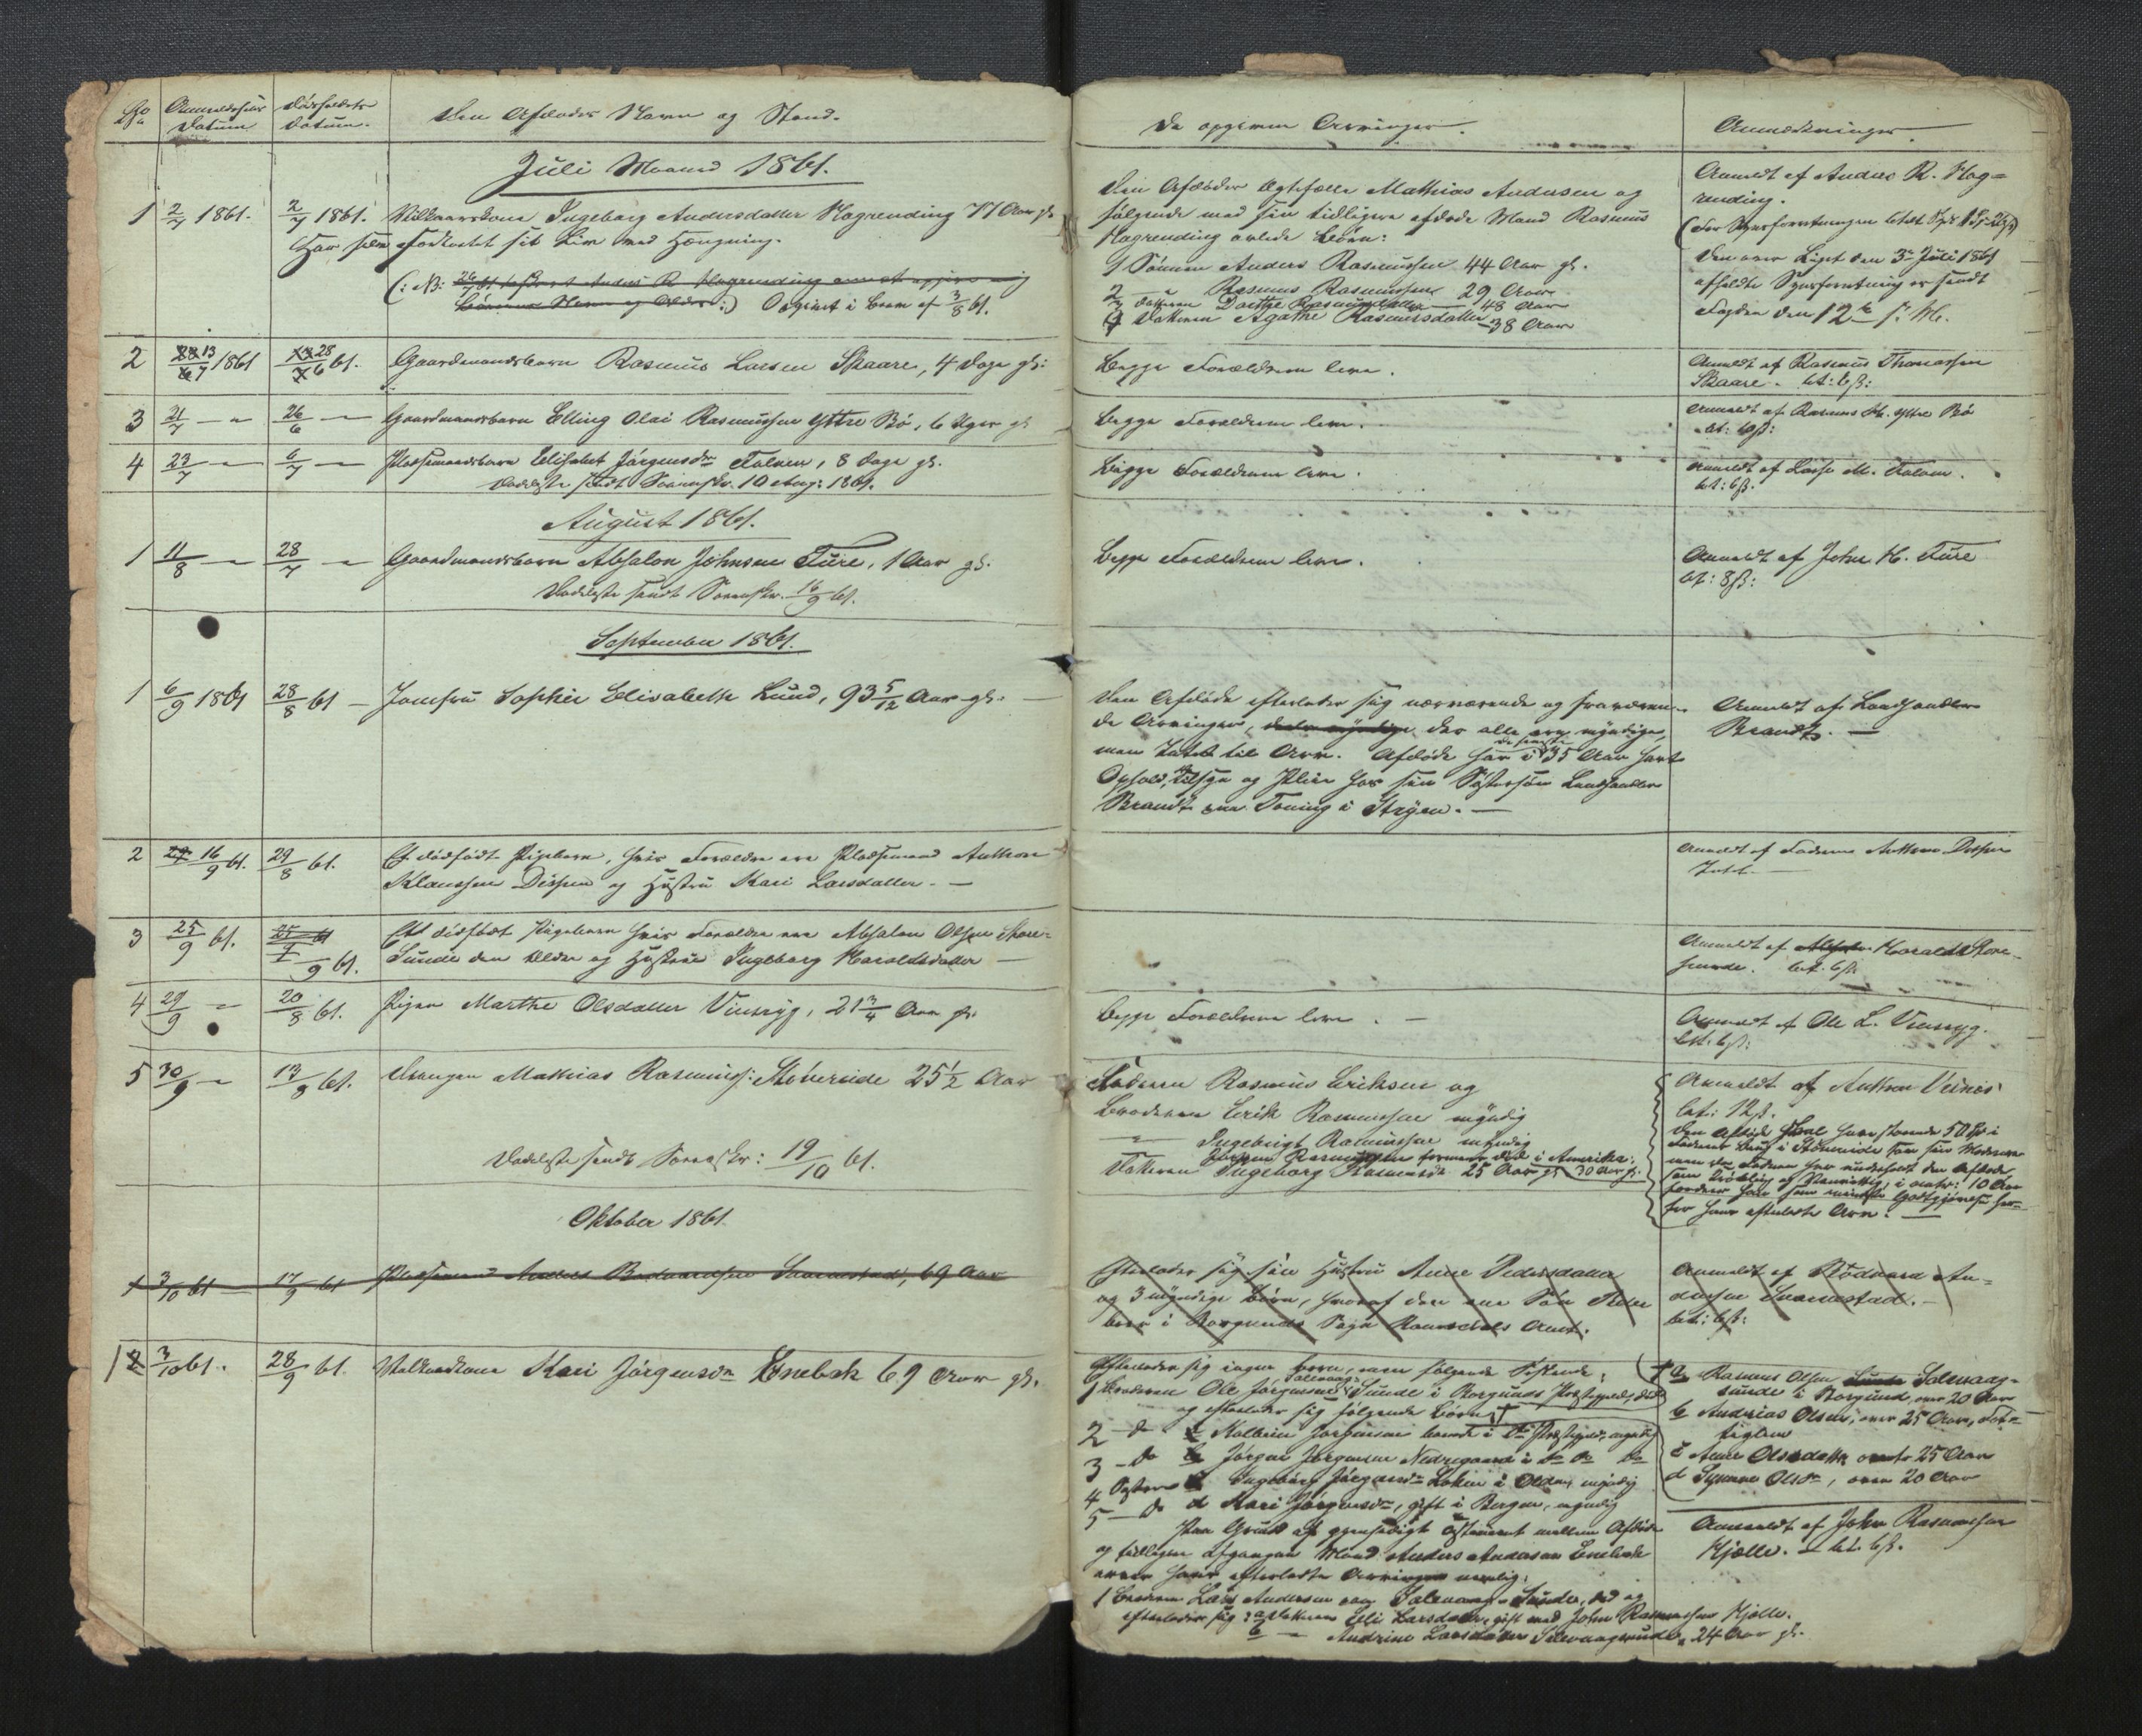 No
Anmeldelsens Datum
Dödsfaldets Datum.
Den Afdødes Navn og Stand.
De opgivne Arvinger.
Anmærkninger
Juli Maaned 1861.
1 2/7 1861. 2/7 1861. Vilkaarskone Ingeborg Andersdatter Nagrending 77 Aar gl.
Har selv forkortet sit Liv ved Hængning.
Børnenes Navn og Alder :) Opgivet i Brev af 3/8 61.
Den Afdødes Ægtefælle Mathias Andersen og
følgende med sin tidligere afdøde Mand Rasmus
Nagrending avlede Børn:
1 Sønnen Anders Rasmussen 44 Aar gl.
2 — " Rasmus Rasmussen 29 Aar
3 Datteren Dorthe Rasmusdatter — 48 Aar
4 Datteren Agathe Rasmusdatter — 38 Aar
Anmeldt af Anders R. Nag=
rending.
Den over Liget den 3de Juli 1861
afholdte Synsforretning er sendt
Fogden den 12te s. M.
2 13/7 1861 28/6 61. Gaardmandsbarn Rasmus Larsen Skaare, 4 Dage gl:
Begge Forældrene leve.
Anmeldt af Rasmus Thomassen
Skaare. bet: 6ß:
3 21/7 — " 26/6 — Gaardmandsbarn Elling Olai Rasmussen Yttre Bö, 6 Uger gl
Begge Forældrene leve.
Anmeldt af Rasmus M. Yttre Bö
bet: 6ß:
4 23/7 — 6/7 — Pladsemandsbarn Elisabet Jørgensdr Folven, 8 Dage gl.
Dødsliste sendt Sorenskr. 10 Aug: 1861.
Begge Forældrene leve.
Anmeldt af Lasse M. Folven.
bet: 6ß.
August 1861.
1 11/8 — 28/7 — Gaardmandsbarn Absalon Johnsen Fure, 1 Aar gl.
Dødsliste sendt Sorenskr. 16/9 61.
Begge Forældrene leve.
Anmeldt af John K. Fure
bet: 8ß:
September 1861.
1 6/9 1861 28/8 61 — Jomfru Sophie Elisabeth Lund, 93 5/12 Aar gl. —
Den Afdøde efterlader sig nærværende og fraværen-
de Arvinger, der alle ere myndige,
men Intet til Arv. Afdøde har i de seneste 35 Aar havt
Ophold, Tilsyn og Pleie hos sin Søstersøn Landhandler
Brandt paa Toning i Stryen. —
Anmeldt af Landhandler
Brandt. —
2 16/9 61. 29/8 61. Et dødfødt Pigebarn, hvis Forældre ere Pladsemand Anthon
Klaussen Dispen og Hustru Kari Larsdatter. —
Anmeldt af Faderen Anthon Dispen
Intet. —
3 25/9 61. /9 61. Et dødfødt Pigebarn hvis Forældre ere Absalon Olsen Skore-
Sunde den Ældre og Hustru Ingeborg Haraldsdatter —
Anmeldt af Harald Skore-
sunde. bet. 6ß
4 29/9 — " 20/8 61. Pigen Marthe Olsdatter Vinsryg, 21 3/4 Aar gl.
Begge Forældrene leve. —
Anmeldt af Ole L. Vinsryg.
bet. 6ß:
5 30/9 — " 13/9 61. Drengen Mathias Rasmuss: Stöverside 25 1/2 Aar
Dødsliste sendt Sorenskr: 19/10 61.
Faderen Rasmus Eriksen og
Broderen Erik Rasmussen myndig
— " — Ingebrigt Rasmussen myndig
Datteren Ingeborg Rasmusdr 25 Aar gl. 30 Aar gl.
Anmeldt af Anthon Veines
bet: 12ß.
Oktober 1861.
1 3/10 61 17/9 61 Pladsemand Anders Bodvardsen Svarvestad, 69 Aar
Efterlader sig sin Hustru Anne Pedersdatter
og 3 myndige Börn, hvoraf den ene Søn Peder
boer i Borgunds Sogn Romsdals Amt.
Anmeldt af Bödvard An-
dersen Svarvestad. —
bet: 6ß:
1 3/10 61. 28/9 61. Vilkaarskone Kari Jörgensdr Enebak 69 Aar gl.
Efterlader sig ingen børn, men følgende Søskende:
1 Broderen Ole Jörgensen Solevaag-Sunde i Borgunds Præstegjeld, død
og efterlader sig følgende børn:
3 — do Jörgen Jörgensen Nedregaard i do do do
4 Søsteren Ingeborg Jörgensdr Loken i Olden, myndig
5 — do d Kari Jörgensdr, gift i Bergen, myndig
Paa Grund af gjensidigt Testament mellem Afdøde
og tidligere afgangen Mand Anders Andersen Enebak
arver hans efterladte Arvinger nemlig:
1 Broderen Lars Andersen paa Solevaag-Sunde, død og
efterlader sig: a Datteren Elli Larsdatter, gift med John Rasmussen Kjölle.
b — Andrine Larsdatter Solevaagsunde, 24 Aar gl.
a Rasmus Olsen Solevaag-
sunde i Borgund, over 20 Aar
b Andreas Olsen, over 25 Aar,
c Anne Olsdatter over 25 Aar
d Synneve Olsdr, over 20 Aar
Anmeldt af John Rasmussen
Kjölle. — bet. 6ß.